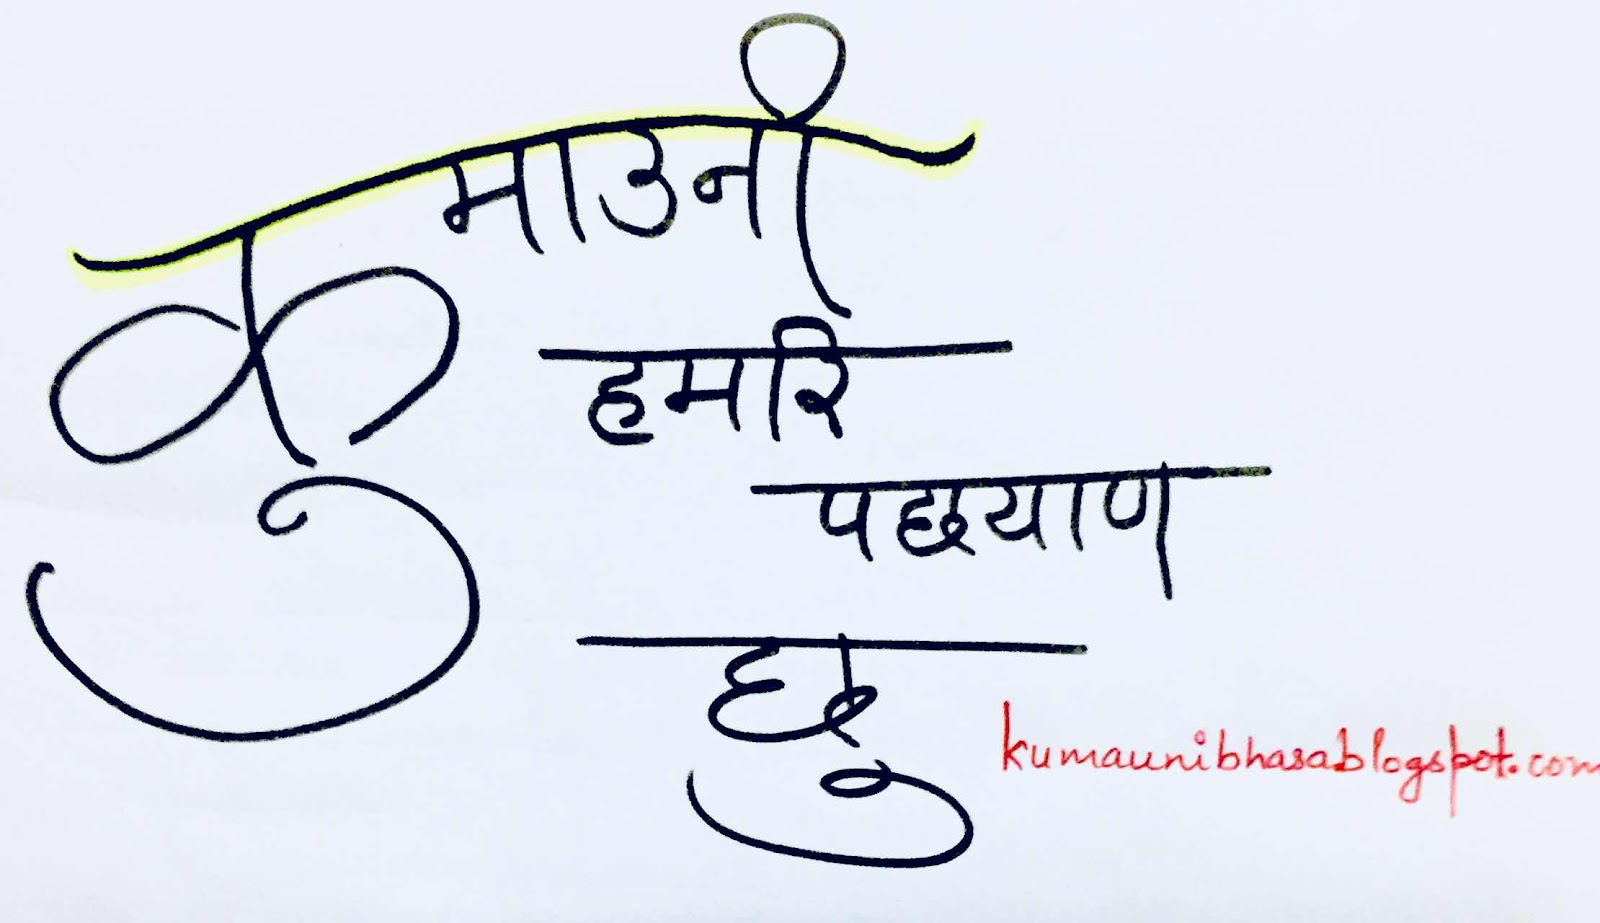 कुमाउनी
हमरि
पछयाण
छु
kumaunibhasablogspot.com